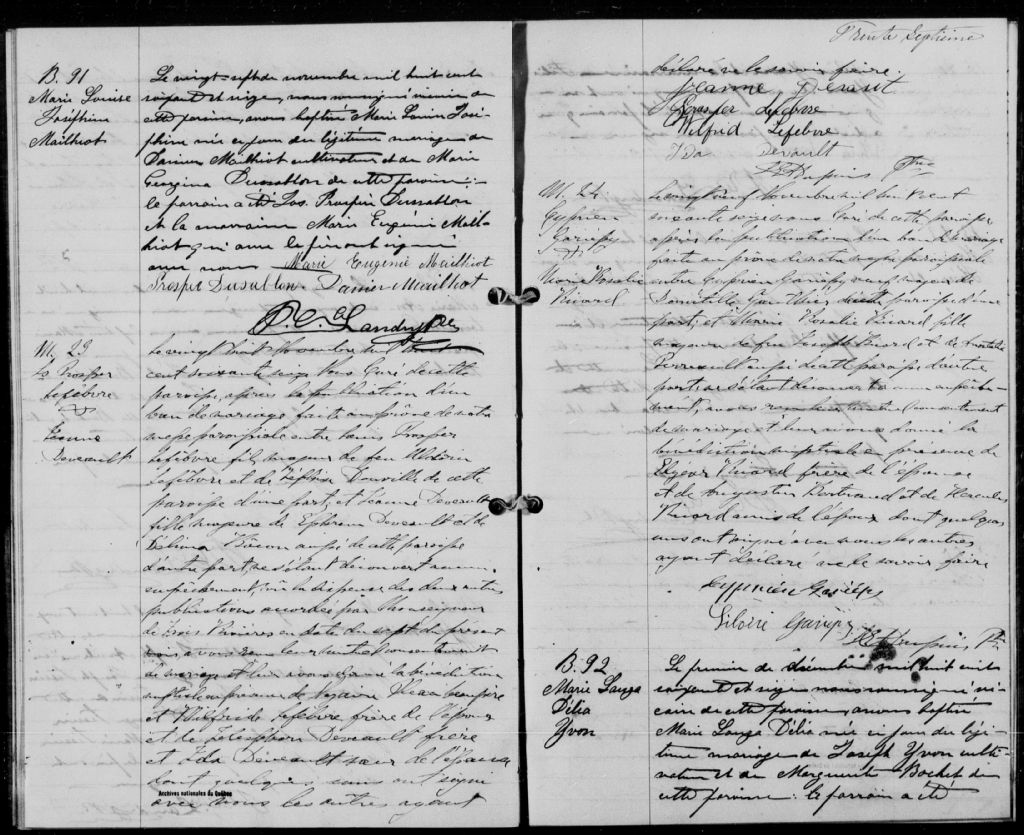 B. 91
Marie Louise
Joséphine
Mailhiot
Le vingt sept de novembre mil huit cent
soixante et seize, nous soussigné vicaire de
cette paroisse, avons baptisé Marie Louise José-
phine née ce jour du légitime mariage de
Mailhiot cultivateur et de Marie
Georgina Dussablon de cette paroisse :-
le parrain a été Jos. Prosper Dussablon
et la marraine Marie Eugénie Mail-
hiot qui avec le père ont signé
avec nous Marie Eugénie Mailhiot
Prosper Dusablon Mailhiot
Landry Ptre
M. 23
Prosper
Lefebvre
&
Jeanne
Deveault
Le vingt huit Novembre mil huit
cent soixante seize Nous Curé de cette
paroisse, après la publication d'un
ban de mariage faite au prône de notre
messe paroissiale entre Prosper
Lefebvre fils majeur de feu
Lefebvre et de Douville de cette
paroisse d'une part et Jeanne Deveault
fille majeure de Ephrem Deveault et de
aussi de cette paroisse
d'autre part, ne s'étant découvert aucun
empêchement, vu la dispense des deux autres
publications accordée par Monseigneur
de Trois Rivières en date du sept du présent
mois avons reçu leur mutuel consentement
de mariage et leur avons donné la bénédiction
nuptiale en présence de
et Wilfrid Lefebvre frère de l'époux
et de Deveault frère
et Ida Deveault soeur de l'épouse
dont quelques uns ont signé
avec nous les autres ayant
Archives nationales du Québec
Trente Septième
déclaré ne le savoir faire.
Jeanne
Prosper Lefebvre
Wilfrid Lefebvre
Ida Devault
Dupuis Ptre
M. 24
Cyprien
Gariépy
&
Marie Rosalie
Ricard
Le vingt neuf Novembre mil huit cent
soixante seize nous Curé de cette paroisse
après la publication d'un ban de mariage
faite au prône de notre messe paroissiale
entre Cyprien Gariépy veuf majeur de
Domitille Gauthier de cette paroisse d'une
part; et Marie Rosalie Ricard fille
majeure de feu Joseph Ricard et de
Perreault aussi de cette paroisse d'autre
part, ne s'étant découvert aucun empêche-
ment, avons reçu leur mutuel consentement
de mariage et leur avons donné la
bénédiction nuptiale en présence de
Elzéar Ricard frère de l'épouse
et de Augustin Bertrand et de Hercules
Ricard amis de l'époux dont quelques
uns ont signé avec nous les autres
ayant déclaré ne le savoir faire
Cyprien Gariépy
Libère Gariépy
Dupuis Ptre
B. 92
Marie Louiza
Délia
Yvon
Le premier de décembre mil huit cent
soixante et seize nous soussigné vi-
caire de cette paroisse, avons baptisé
Marie Louiza Délia née ce jour du légi-
time mariage de Joseph Yvon culti-
vateur et de Marguerite Rochet de
cette paroisse : le parrain a été